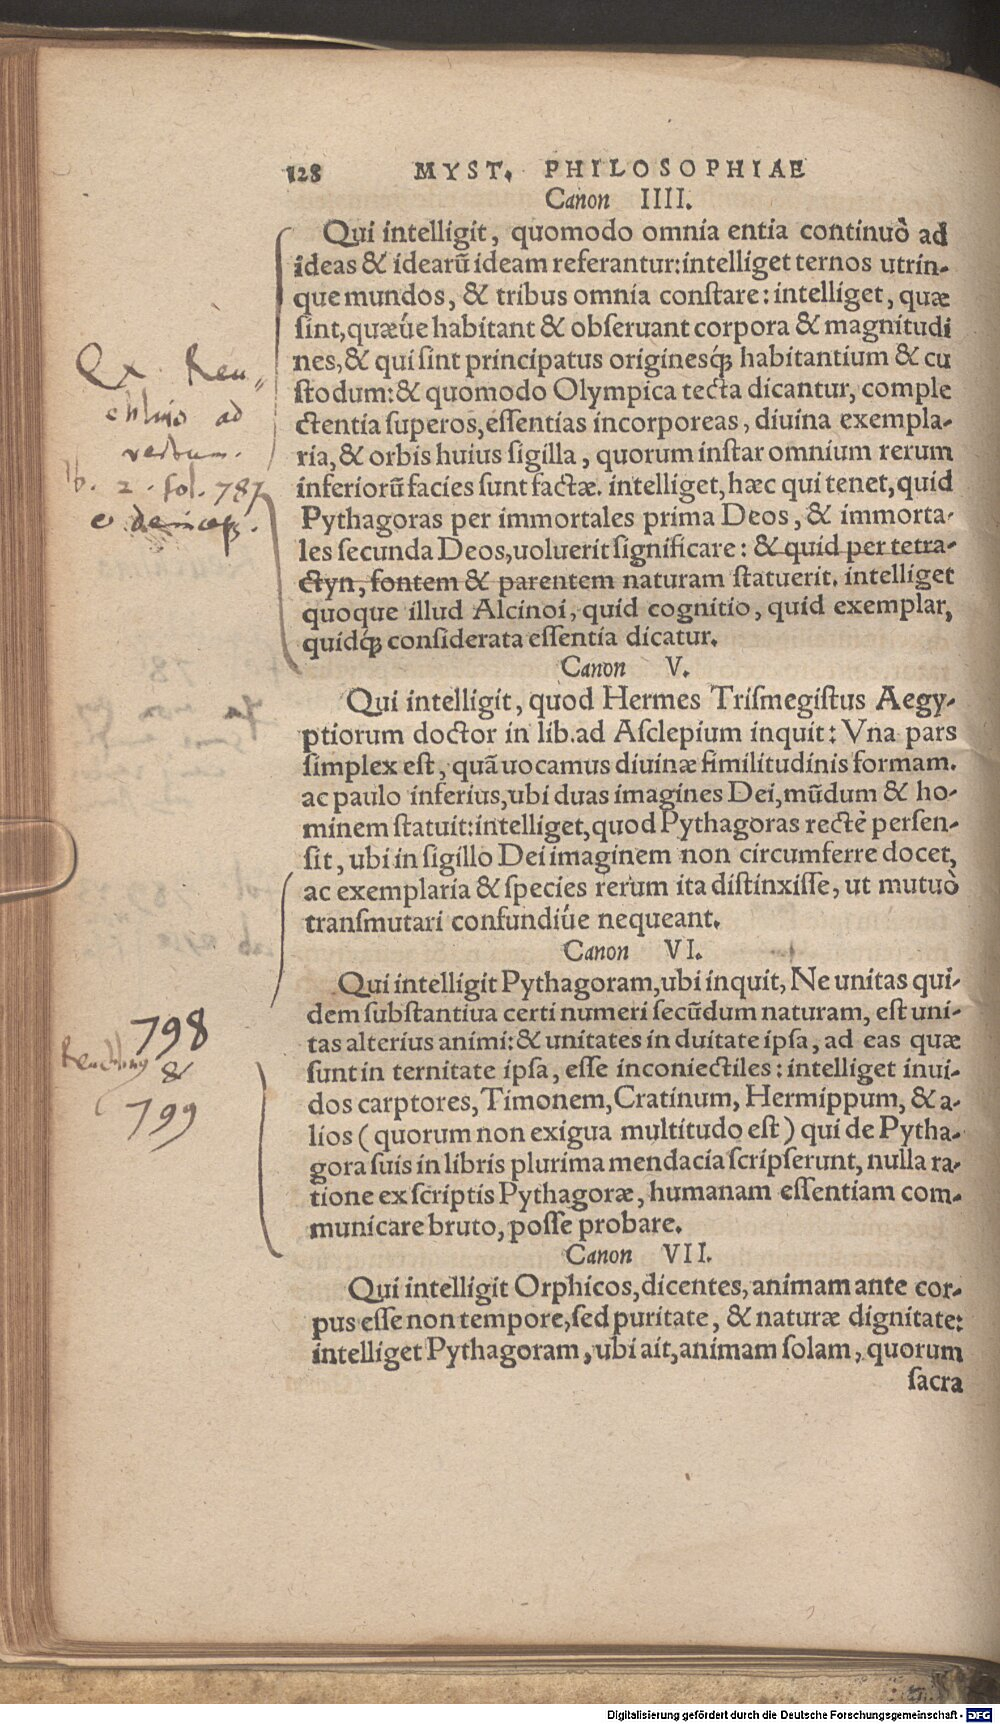 128 MYST. PHILOSOPHIAE
Canon IIII.
Qui intelligit, quomodo omnia entia continuò ad
ideas & idearũ ideam referantur: intelliget ternos utrin-
que mundos, & tribus omnia constare: intelliget, quæ
sint, quæúe habitant & obseruant corpora & magnitudi
nes, & qui sint principatus originesq́; habitantium & cu
stodum: & quomodo Olympica tecta dicantur, comple
ctentia superos, essentias incorporeas, diuina exempla-
ria, & orbis huius sigilla, quorum instar omnium rerum
inferiorũ facies sunt factæ. intelliget, hæc qui tenet, quid
Pythagoras per immortales prima Deos, & immorta-
les secunda Deos, uoluerit significare: & quid per tetra-
ctyn, fontem & parentem naturam statuerit. intelliget
quoque illud Alcinoi, quid cognitio, quid exemplar,
quidq́; considerata essentia dicatur.
Ex Reu„
chlino ad
verbum.
lib. 2. fol. 787
& deinceps.
Canon V.
Qui intelligit, quod Hermes Trismegistus Aegy-
ptiorum doctor in lib. ad Asclepium inquit: Vna pars
simplex est, quã uocamus diuinæ similitudinis formam.
ac paulo inferius, ubi duas imagines Dei, mũdum & ho-
minem statuit: intelliget, quod Pythagoras rectè persen-
sit, ubi in sigillo Dei imaginem non circumferre docet,
ac exemplaria & species rerum ita distinxisse, ut mutuò
transmutari confundiúe nequeant.
Canon VI.
Qui intelligit Pythagoram, ubi inquit, Ne unitas qui-
dem substantiua certi numeri secũdum naturam, est uni-
tas alterius animi: & unitates in duitate ipsa, ad eas quæ
sunt in ternitate ipsa, esse inconiectiles: intelliget inui-
dos carptores, Timonem, Cratinum, Hermippum, & a-
lios (quorum non exigua multitudo est) qui de Pytha-
gora suis in libris plurima mendacia scripserunt, nulla ra-
tione ex scriptis Pythagoræ, humanam essentiam com-
municare bruto, posse probare.
798
&
799
Canon VII.
Qui intelligit Orphicos, dicentes, animam ante cor-
pus esse non tempore, sed puritate, & naturæ dignitate:
intelliget Pythagoram, ubi ait, animam solam, quorum
sacra
Digitalisierung gefördert durch die Deutsche Forschungsgemeinschaft - DFG